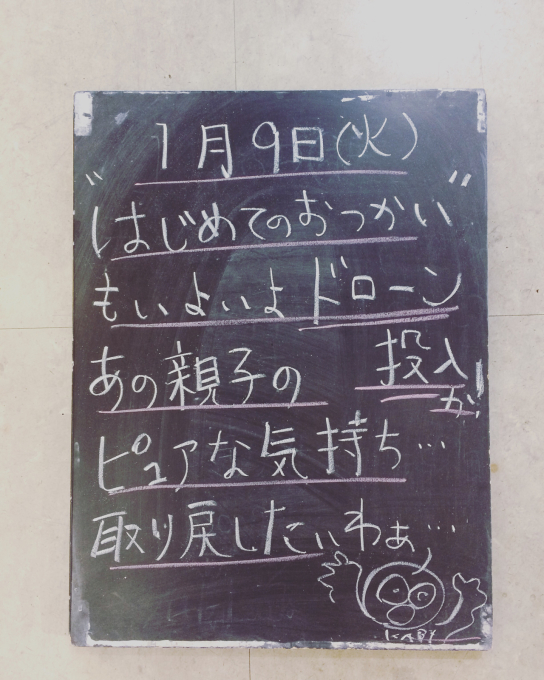 1月9日(火)
"はじめてのおつかい"
もいよいよドローン
投入か!
あの親子の
ピュアな気持ち…
取り戻したいわぁ…